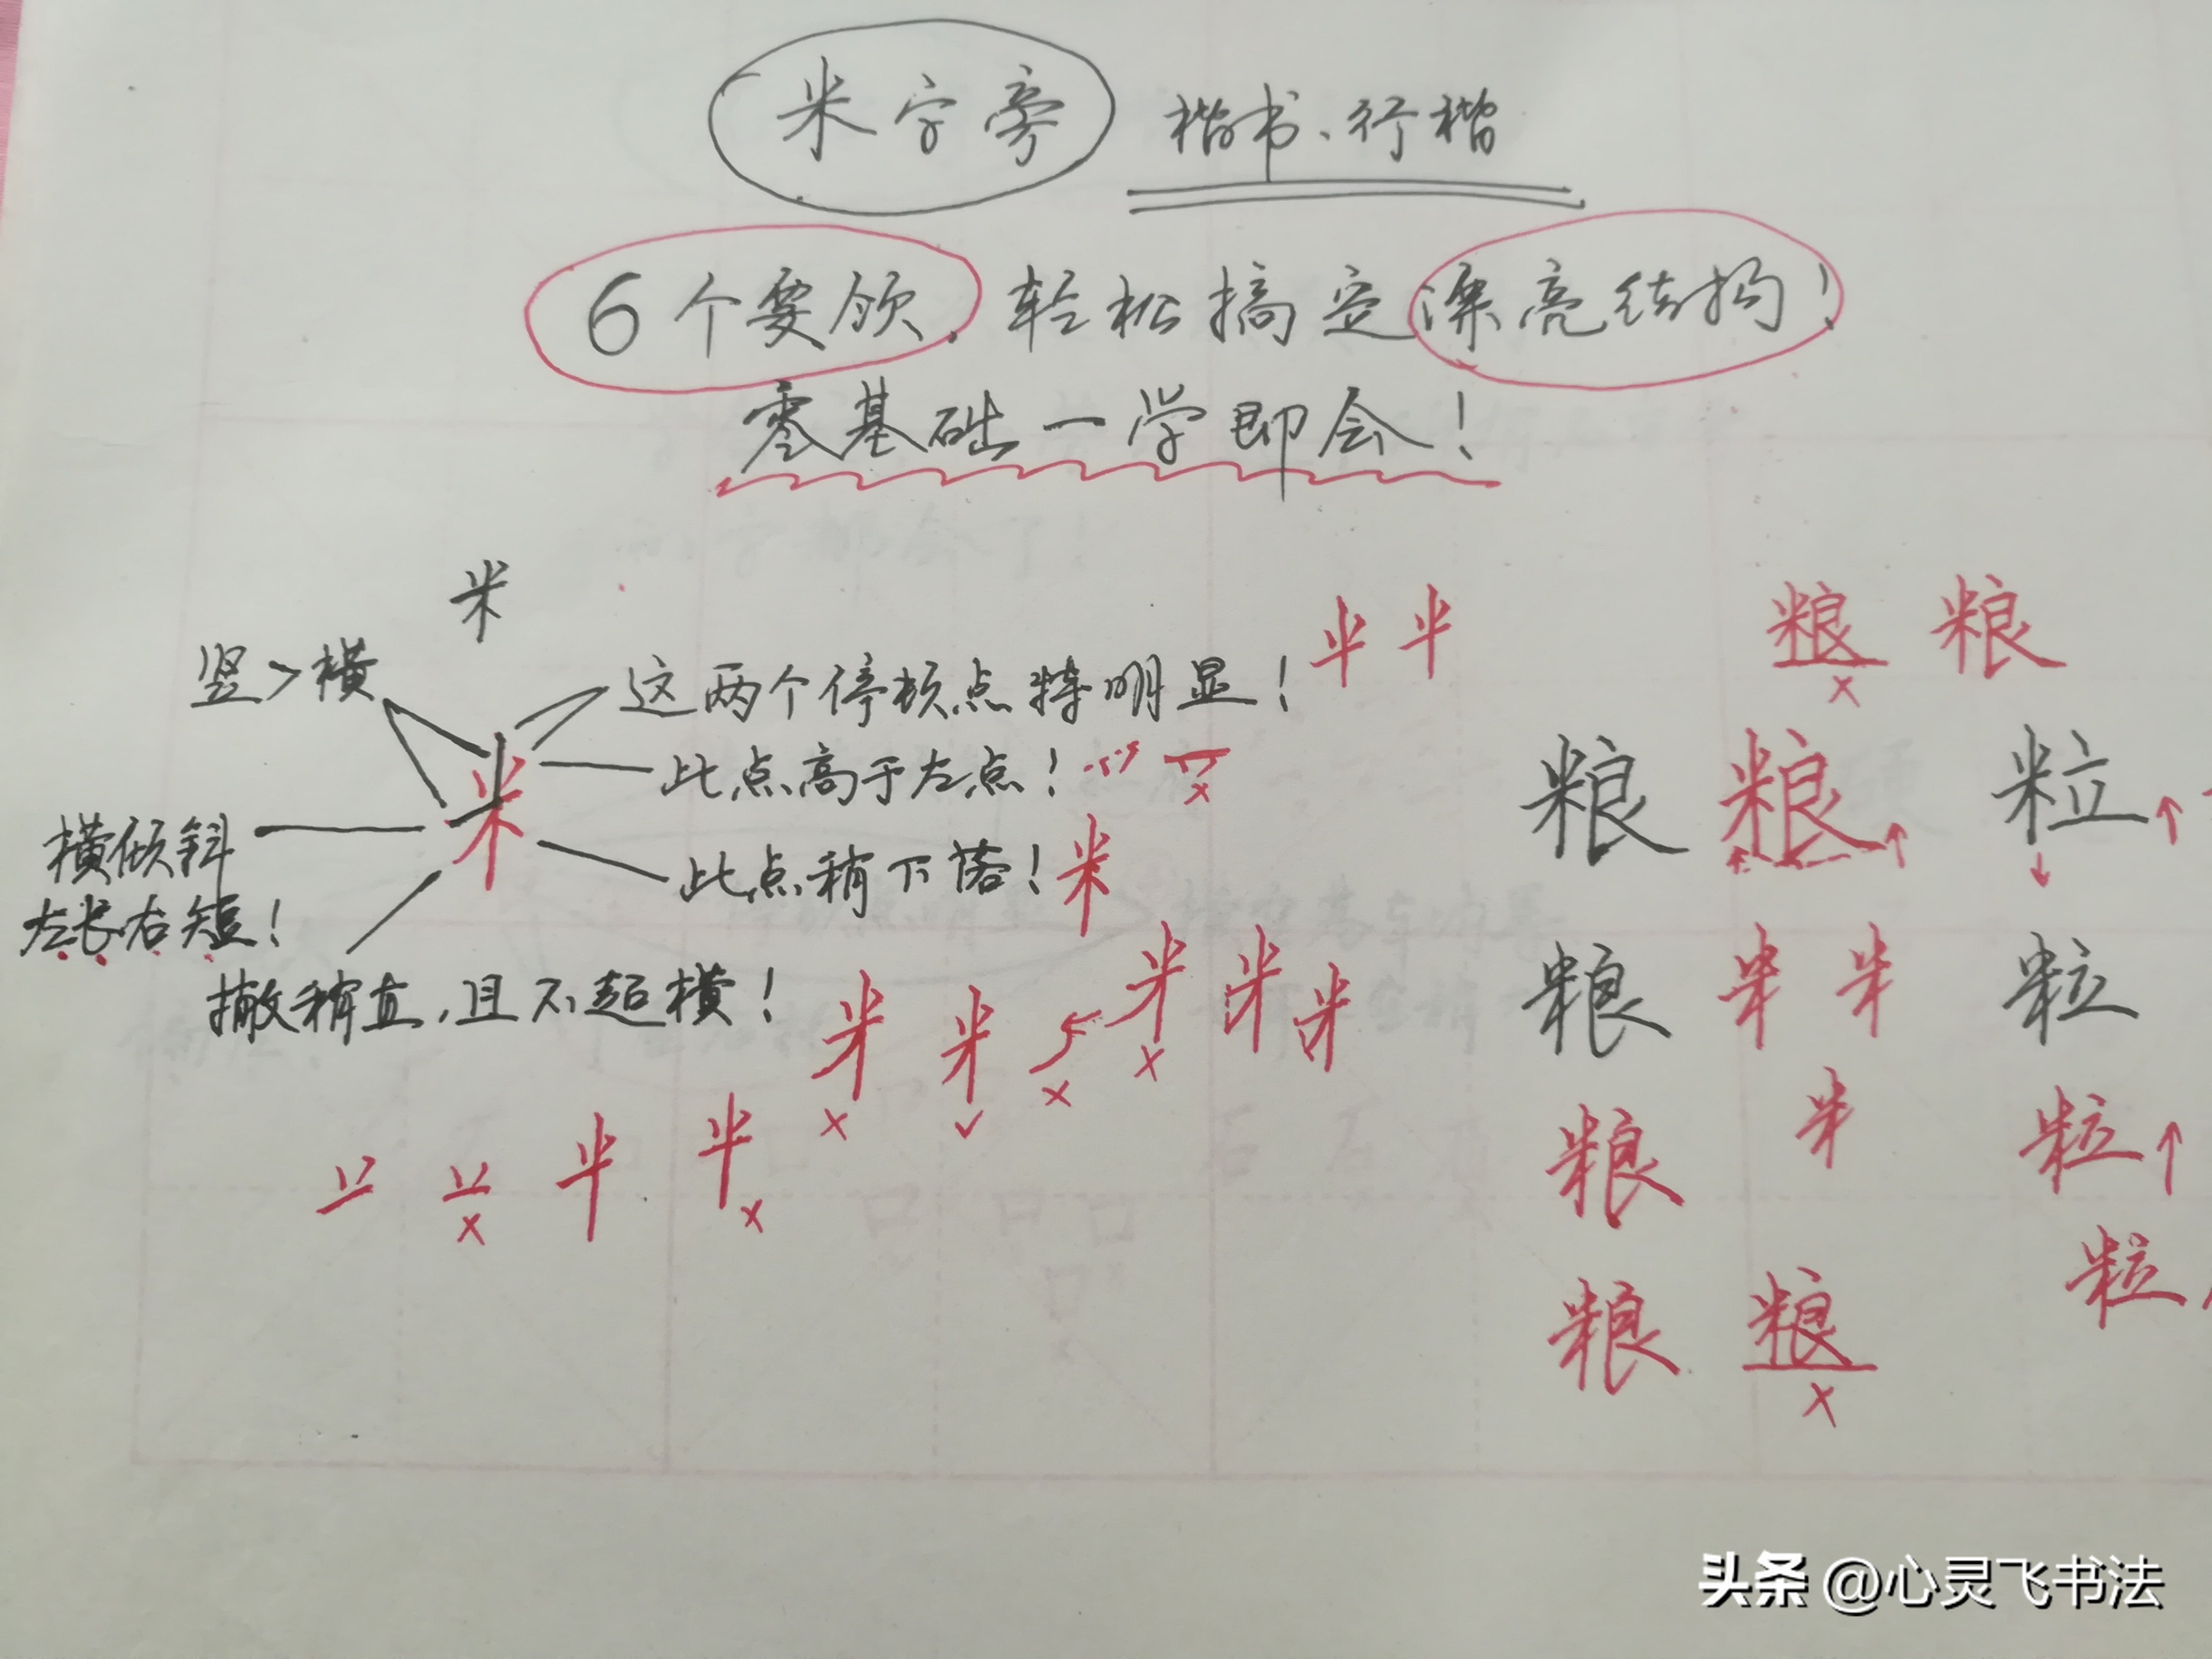 米字旁 楷书、行楷
6个要领，轻松搞定漂亮结构！
零基础一学即会！
米
竖>横
这两个停顿点特明显！
半 半
此点高于左点！
x
横倾斜
左长右短！
此点稍下落！米
撇稍直，且不超横！
米 米 米 米 米
x ✓ x x
x 半 半 x
粮 粮
x
粮 粮 粒
粮 米 米 粒
粮 米 粒
粒
粮 粮
x
头条 @心灵飞书法